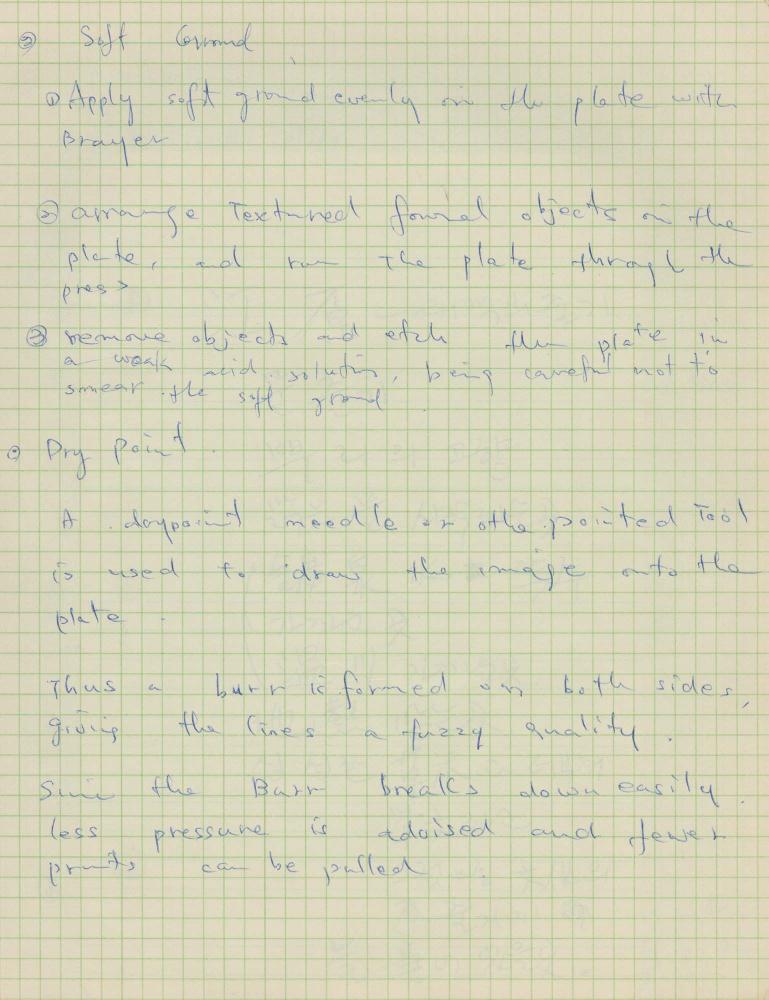 ② Soft Ground
① Apply soft ground evenly on the plate with
Brayer
② arrange Textured found objects on the
plate, and run the plate through the
press
③ remove objects and etch the plate in
a weak acid solution, being careful not to
smear the soft ground
Dry Point.
A drypoint needle or othe pointed Tool
is used to draw the image onto the
plate.
Thus a burr is formed on both sides,
giving the lines a fuzzy quality.
Since the Burr breaks down easily.
less pressure is advised and fewer
prints can be pulled.